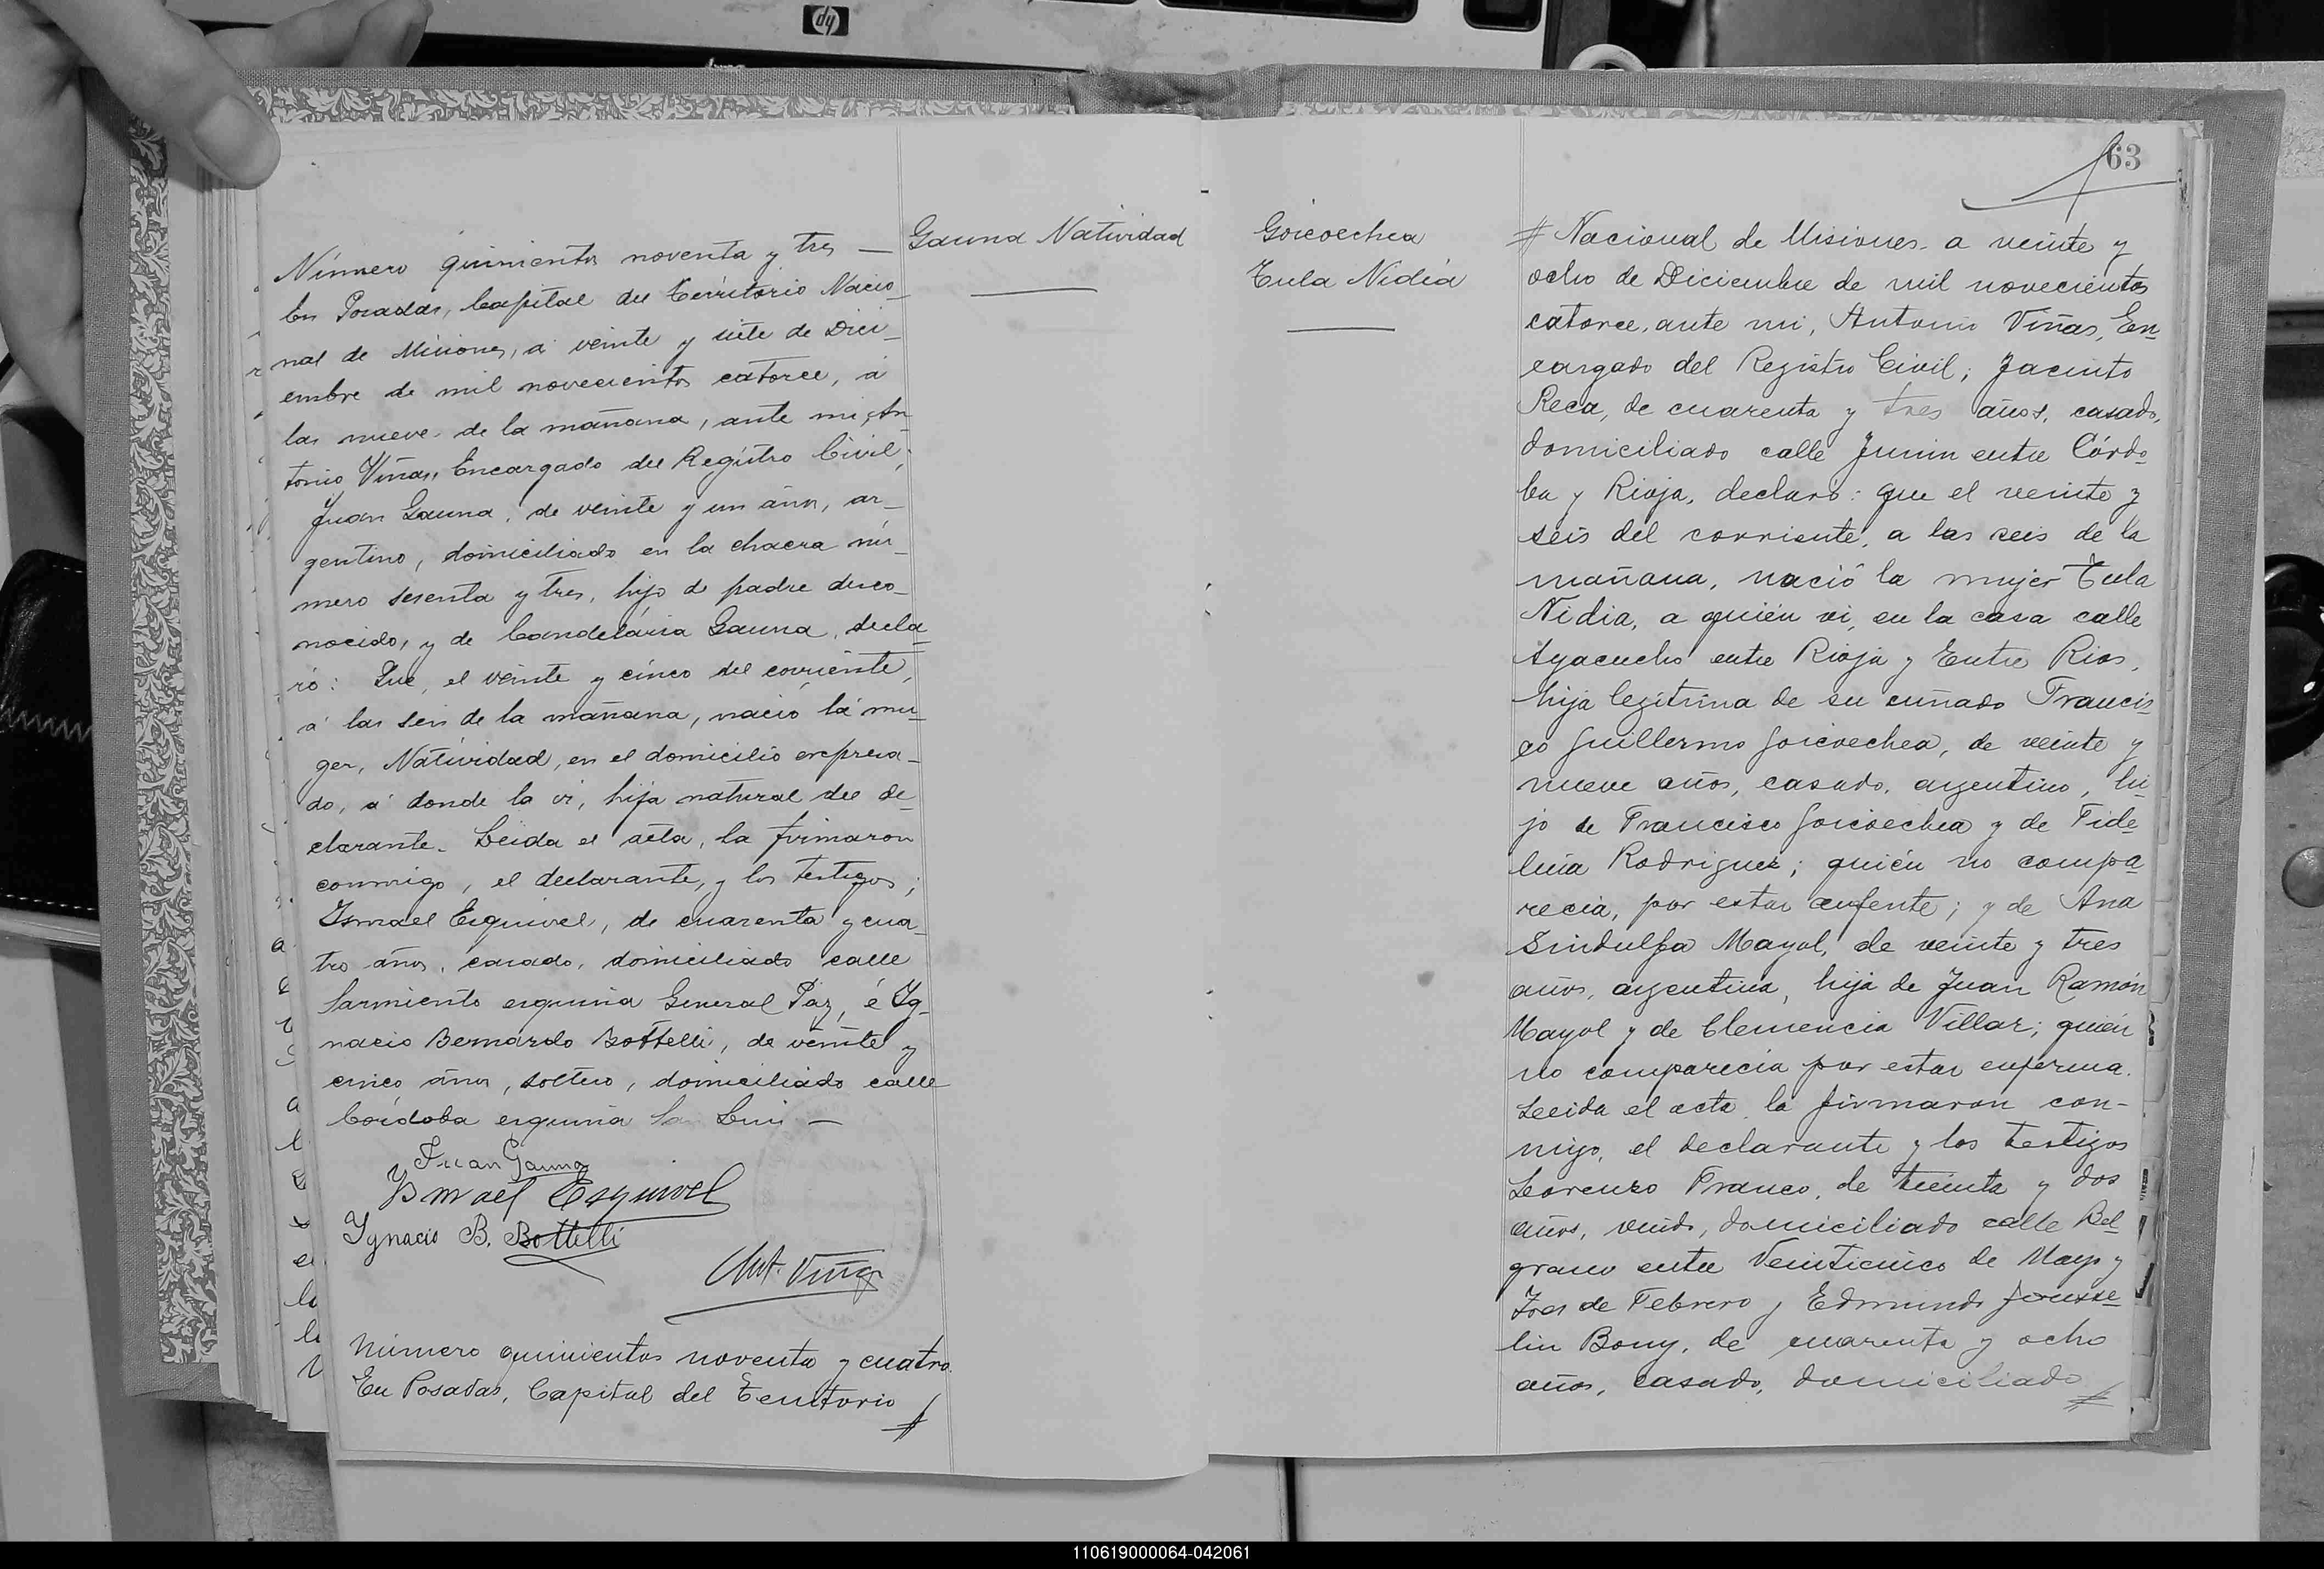 hp
Gauna Natividad
Número quinientos noventa y tres —
En Posadas, Capital del Territorio Nacio_
nal de Misiones, á veinte y siete de Dici_
embre de mil novecientos catorce, á
las nueve de la mañana, ante mi, An_
tonio Viñas, Encargado del Registro Civil;
Juan Gauna, de veinte y un años, ar_
gentino, domiciliado en la chacra nú_
mero sesenta y tres, hijo d padre desco_
nocido, y de Candelária Gauna, decla_
ró: Que, el veinte y cinco del corriente,
á las seis de la mañana, nació la mu_
ger, Natividad, en el domicilio expresa_
do, á donde la vi, hija natural del de_
clarante. Leida el acta, la firmaron
conmigo, el declarante, y los testigos;
Ismael Esquivel, de cuarenta y cua_
tro años, casado, domiciliado calle
Sarmiento esquina General Paz, é Ig_
nacio Bernardo Bottelli, de veinte y
cinco años, soltero, domiciliado calle
Córdoba esquina San Luis —
Juan Gauna
Ismael Esquivel
Ygnacio B. Bottelli
Ant. Viñas
Número quinientos noventa y cuatro.
En Posadas, Capital del Territorio #
63
Goicoechea
Tula Nidia
# Nacional de Misiones a veinte y
ocho de Diciembre de mil novecientos
catorce, ante mi, Antonio Viñas, En_
cargado del Registro Civil; Jacinto
Reca, de cuarenta y tres años, casado,
domiciliado calle Junin entre Córdo_
ba y Rioja, declaró: que el veinte y
seis del corriente, a las seis de la
mañana, nació la mujer Tula
Nidia, a quién vi, en la casa calle
Ayacucho entre Rioja y Entre Rios,
hija legítima de su cuñado Francis_
co Guillermo Goicoechea, de veinte y
nueve años, casado, argentino, hi_
jo de Francisco Goicoechea y de Fide_
lina Rodriguez; quién no compa_
recia, por estar aufente; y de Ana
Sindulfa Mayol, de veinte y tres
años, argentina, hija de Juan Ramón
Mayol y de Clemencia Villar; quién
no comparecia por estar enferma.
Leeida el acta, la firmaron con-
migo, el declarante y los testigos
Lorenzo Franco, de treinta y dos
años, viudo, domiciliado calle Bel_
grano entre Veinticinco de Mayo y
Tres de Febrero y Edmundo Jousse_
lin Bony, de cuarenta y ocho
años, casado, domiciliado #
110619000064-042061